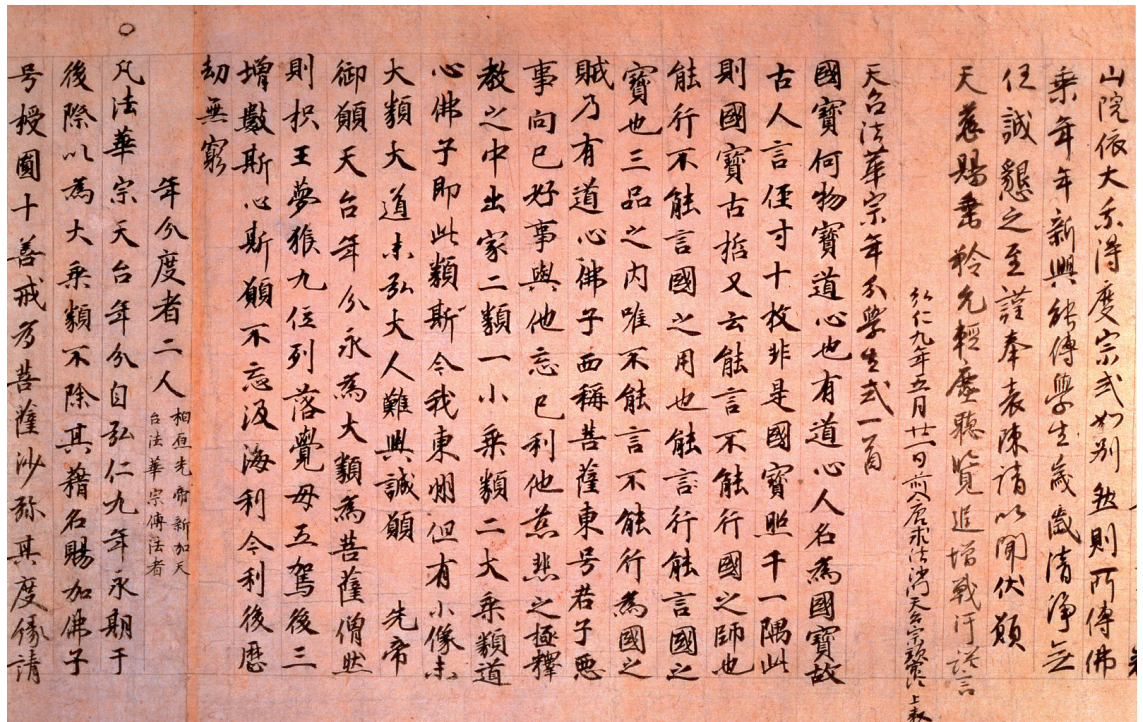 山院依大系得度宗式如別然則所傳佛
乘年年新興能傳學生歲歲清淨無
任誠懇之至謹奉表陳請以聞伏願
天慈賜垂矜允輕塵聽覽追增戰汗謹言
弘仁九年五月廿一日前入唐求法沙門天台宗 上表
天台法華宗年分學生式一首
國寶何物寶道心也有道心人名為國寶故
古人言徑寸十枚非是國寶照千一隅此
則國寶古哲又云能言不能行國之師也
能行不能言國之用也能言行能言國之
寶也三品之內唯不能言不能行為國之
賊乃有道心佛子西稱菩薩東号君子惡
事向己好事與他忘己利他慈悲之極釋
教之中出家二類一小乘類二大乘類道
心佛子即此類斯今我東州但有小像未
大類大道未弘大人難興誠願 先帝
御願天台年分永為大類為菩薩僧然
則枳王夢猴九位列落覺母五駕後三
增數斯心斯願不忘汲海利今利後歷
劫無窮
年分度者二人 柏原先帝新加天
台法華宗傳法者
凡法華宗天台年分自弘仁九年永期于
後際以為大乘類不除其藉名賜加佛子
号授圓十善戒為菩薩沙弥其度緣請